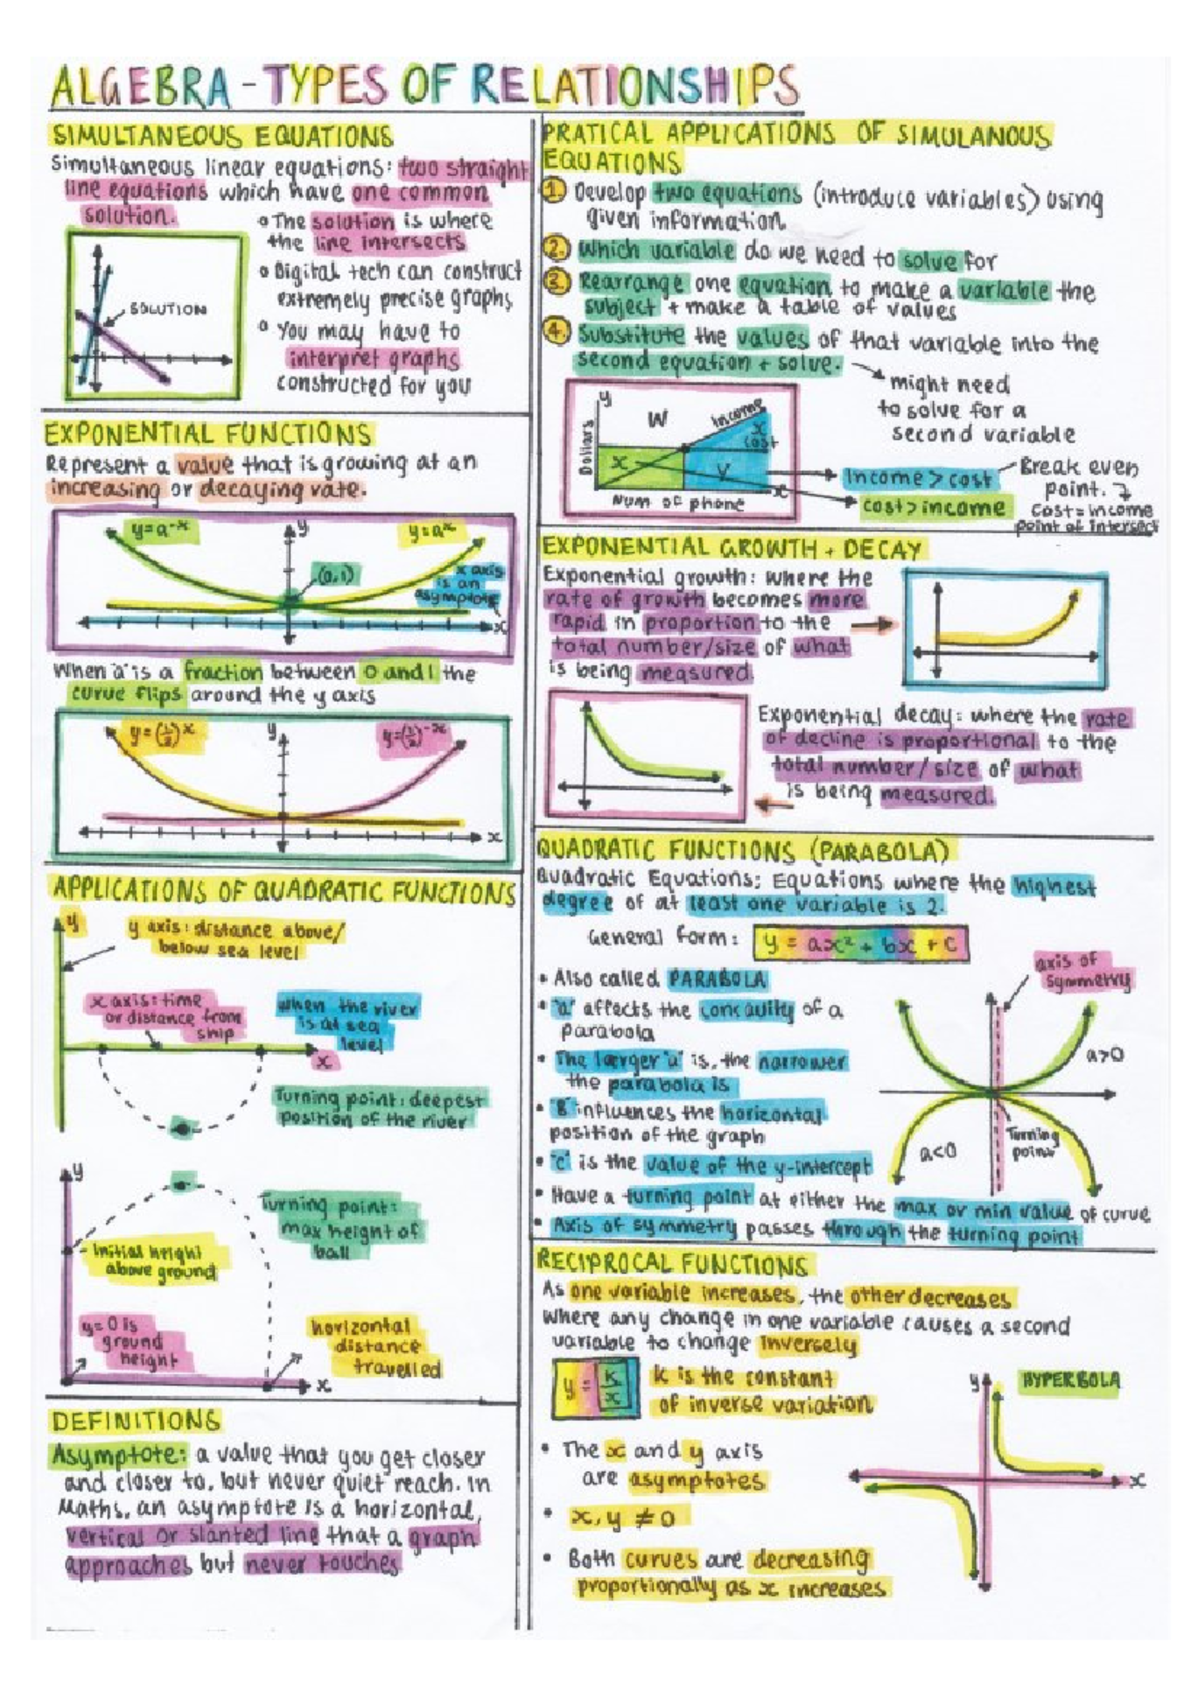 ALGEBRA - TYPES OF RELATIONSHIPS
SIMULTANEOUS EQUATIONS
Simultaneous linear equations: two straight
line equations which have one common
solution.
The solution is where
the line intersects
Digital tech can construct
extremely precise graphs
You may have to
interpret graphs
constructed for you
SOLUTION
EXPONENTIAL FUNCTIONS
Represent a value that is growing at an
increasing or decaying rate.
y=a^-x
y
y=a^x
(0,1)
x axis
is an
asymptote
x
When 'a' is a fraction between 0 and 1 the
curve flips around the y axis
y=(½)^x
y
y=(½)^-x
x
APPLICATIONS OF QUADRATIC FUNCTIONS
y
y axis: distance above/
below sea level
x axis: time
or distance from
ship
when the river
is at sea
level
x
Turning point: deepest
position of the river
y
Turning point:
max height of
ball
Initial height
above ground
y=0 is
ground
height
horizontal
distance
travelled
x
DEFINITIONS
Asymptote: a value that you get closer
and closer to, but never quiet reach. In
Maths, an asymptote is a horizontal,
vertical or slanted line that a graph
approaches but never touches
PRATICAL APPLICATIONS OF SIMULANOUS
EQUATIONS
1. Develop two equations (introduce variables) using
given information
2. Which variable do we need to solve for
3. Rearrange one equation to make a variable the
subject + make a table of values
4. Substitute the values of that variable into the
second equation + solve.
might need
to solve for a
second variable
y
Dollars
W
Income
x
cost
X
Y
x
Num of phone
Income > cost
cost > income
Break even
point.
Cost = income
point of intersect
EXPONENTIAL GROWTH + DECAY
Exponential growth: where the
rate of growth becomes more
rapid in proportion to the
total number/size of what
is being measured.
Exponential decay: where the rate
of decline is proportional to the
total number/size of what
is being measured.
QUADRATIC FUNCTIONS (PARABOLA)
Quadratic Equations: Equations where the highest
degree of at least one variable is 2.
General form: y = ax² + bx + c
• Also called PARABOLA
• 'a' affects the concavity of a
parabola
• The larger 'a' is, the narrower
the parabola is
• 'B' influences the horizontal
position of the graph
• 'c' is the value of the y-intercept
• Have a turning point at either the max or min value of curve
• Axis of symmetry passes through the turning point
axis of
symmetry
a>0
a<0
Turning
point
RECIPROCAL FUNCTIONS
As one variable increases, the other decreases
where any change in one variable causes a second
variable to change inversely
y = k/x
k is the constant
of inverse variation
• The x and y axis
are asymptotes
• x, y ≠ 0
• Both curves are decreasing
proportionally as x increases
y
HYPERBOLA
x